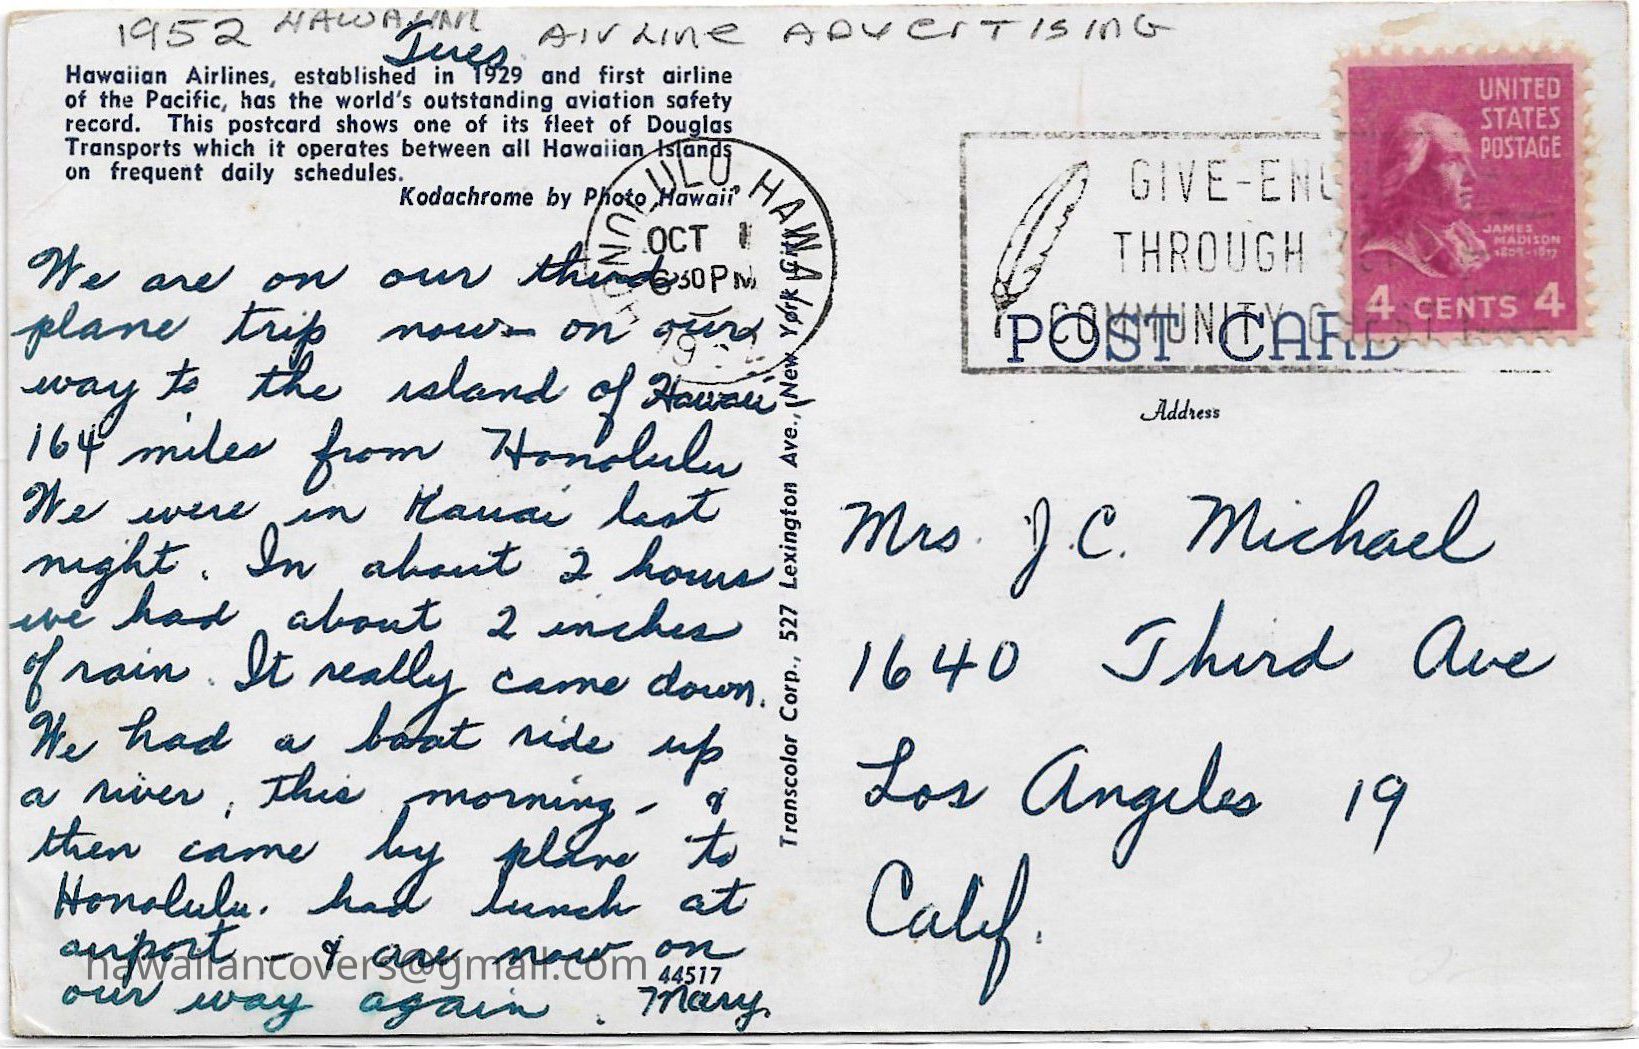 1952 HAWAIIAN AIRLINE ADVERTISING
Tues.
Hawaiian Airlines, established in 1929 and first airline
of the Pacific, has the world's outstanding aviation safety
record. This postcard shows one of its fleet of Douglas
Transports which it operates between all Hawaiian Islands
on frequent daily schedules.
Kodachrome by Photo Hawaii
We are on our third
plane trip now - on our
way to the island of Hawaii -
164 miles from Honolulu
We were in Kauai last
night. In about 2 hours
we had about 2 inches
of rain. It really came down.
We had a boat ride up
a river, this morning - &
then came by plane to
Honolulu. had lunch at
airport - & are now on
our way again. Mary.
44517
hawaiiancovers@gmail.com
Transcolor Corp., 527 Lexington Ave., New York City
HONOLULU HAWAII
OCT
630PM
GIVE-
THROUGH
COMMUNITY
UNITED
STATES
POSTAGE
JAMES
MADISON
4 CENTS 4
POST CARD
Address
Mrs. J. C. Michael
1640 Third Ave
Los Angeles 19
Calif.